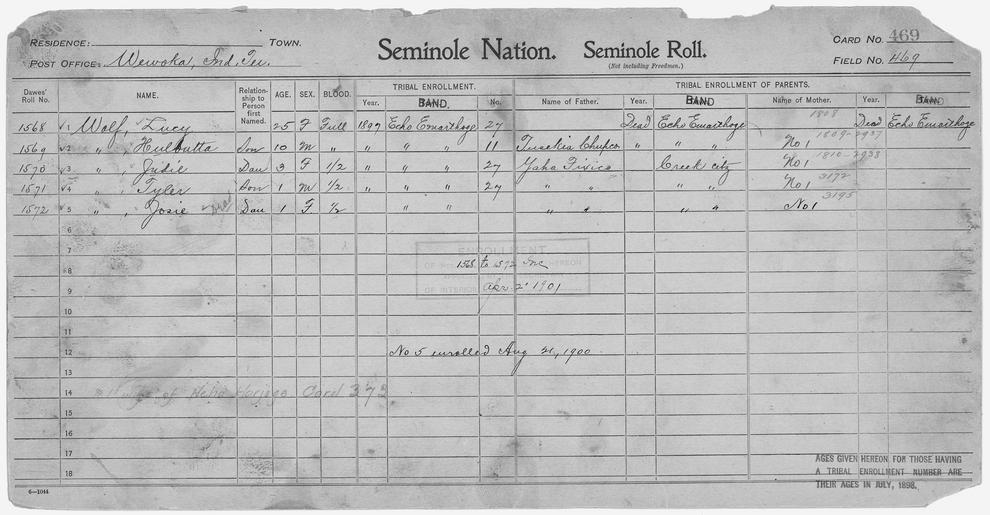 RESIDENCE: TOWN.
POST OFFICE: Wewoka, Ind. Ter.
Seminole Nation. Seminole Roll.
(Not including Freedmen.)
CARD NO. 469
FIELD NO. 469
Dawes' Roll No. NAME. Relationship to Person first Named. AGE. SEX. BLOOD. TRIBAL ENROLLMENT. TRIBAL ENROLLMENT OF PARENTS.
Year. BAND. No. Name of Father. Year. BAND. Name of Mother. Year. BAND.
1808
1568 1 Wolf, Lucy 25 F Full 1897 Echo Emarthoge 27 Dead Echo Emarthoge Dead Echo Emarthoge
1809-2937
1569 2 " , Hulbutta Son 10 M " " " " 11 Tuseka Chupco " " " No 1
1810-2938
1570 3 " , Judie Dau 3 F 1/2 " " " 27 Yaha Fixico Creek city No 1
3172
1571 4 " , Tyler Son 1 M 1/2 " " " 27 " " " " No 1
3195
1572 5 " , Josie Dau 1 F 1/2 " " " " " " No 1
6
7
ENROLLMENT
8 OF HEREON 1568 to 1572 Inc
9 OF INTERIOR Apr 2 1901
10
11
12 No 5 enrolled Aug 21, 1900
13
14 of Neha Harjoge Card 373
15
16
17
18
AGES GIVEN HEREON FOR THOSE HAVING
A TRIBAL ENROLLMENT NUMBER ARE
THEIR AGES IN JULY, 1898.
6-1044